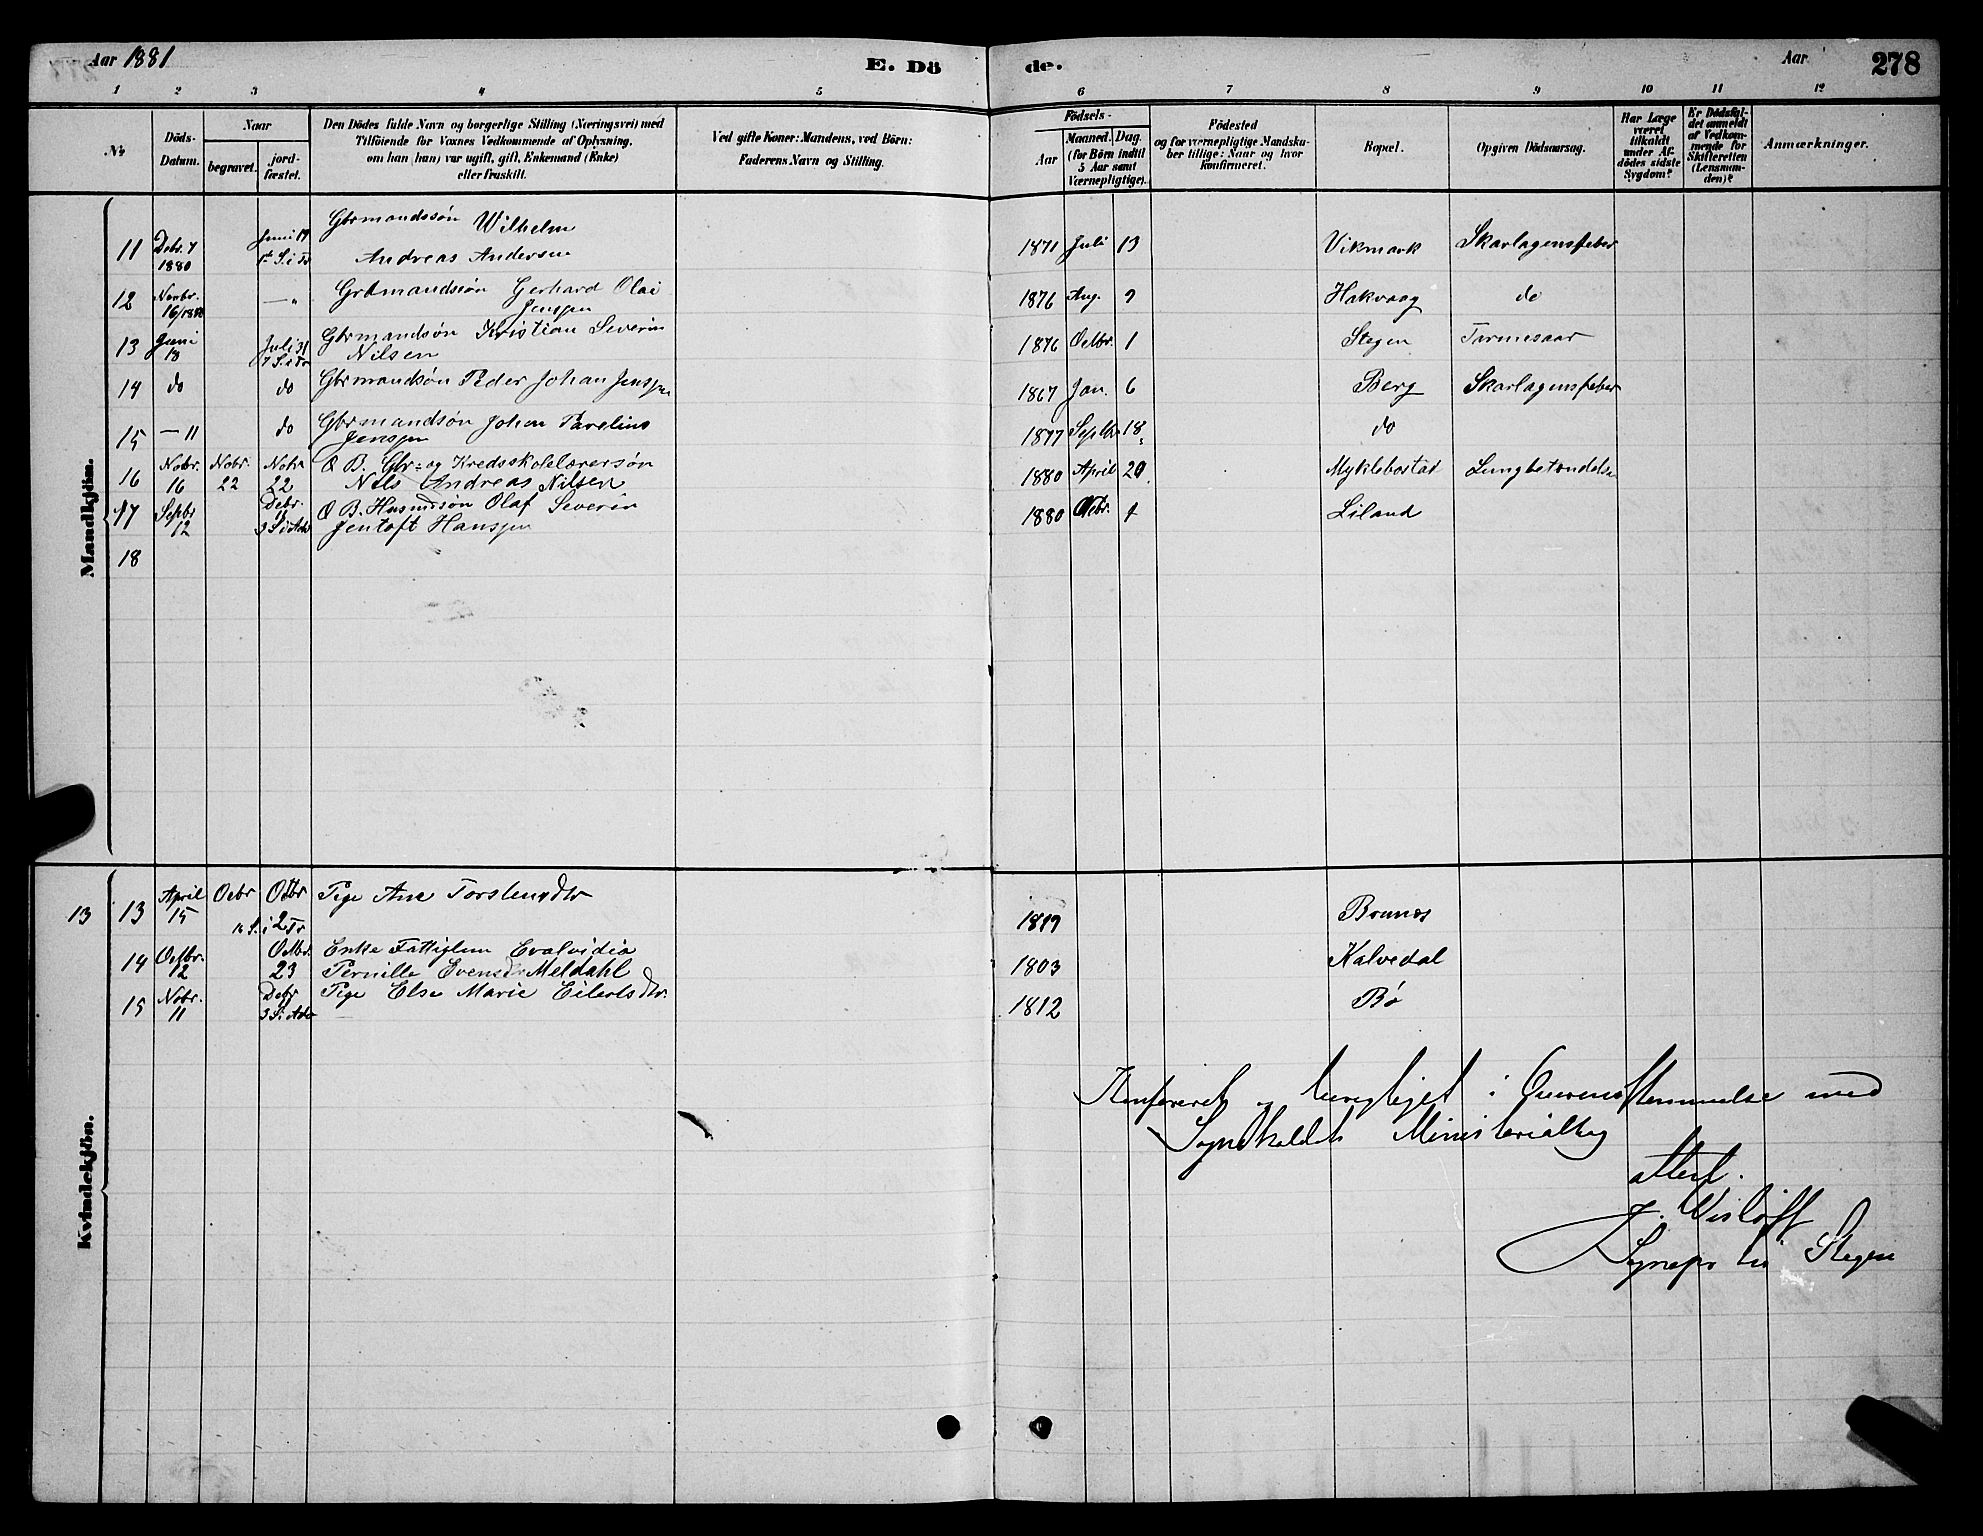 Aar 1881
E. Dö
de.
Aar
278
1 2 3 4 5 6 7 8 9 10 11 12
№
Döds-Datum.
Naar
begravet.
jord-fæstet.
Den Dödes fulde Navn og borgerlige Stilling (Næringsvei) med
Tilföiende for Voxnes Vedkommende af Oplysning,
om han (hun) var ugift, gift, Enkemand (Enke)
eller fraskilt.
Ved gifte Koner: Mandens, ved Börn:
Faderens Navn og Stilling.
Födsels-
Aar
Maaned.
Dag.
(for Börn indtil
5 Aar samt
Værnepligtige).
Födested
og for værnepligtige Mandska-
ber tillige: Naar og hvor
konfirmeret.
Bopæl.
Opgiven Dödsaarsag.
Har Læge
været
tilkaldt
under Af-
dödes sidste
Sygdom?
Er Dödsfal-
det anmeldt
af Vedkom-
mende for
Skifteretten
(Lensman-
den)?
Anmærkninger.
Mandkjön.
11 Debr. 7 1880 Juni 19 Gbrmandssön Wilhelm
Andreas Andersen 1871 Juli 13 Vikmark Skarlagensfeber
12 Novbr. 16/1880 —„ Grbmandssön Gerhard Olai
Jenssen 1876 Aug. 9 Hakvaag do
13 Juni 13 Juli 31 7 S. i Tr Gbrmandsøn Kristian Severin
Nilsen 1876 Octbr. 1 Stegen
14 do do Gbrmandsøn Peder Johan Jenssen 1867 Jan. 6 Berg Skarlagensfeber
15 — 11 do Gbrmandsøn Johan Parelius
Jenssen 1877 Septbr 18 do
16 Nobr. 16 Nobr. 22 Nobr 22 O B. Gbr- og Kredsskolelærersøn
Nils Andreas Nilsen 1880 April 20 Myklebostad Lungbetændelse
17 Septbr 12 Debr 11 3 S i Adv O B. Husmdsøn Olaf Severin
Jentoft Hanssen 1880 Octbr. 1 Liland
18
Kvindekjön.
13 13 April 15 Octbr Octbr 2 Pige Ane Torstensdtr 1819 Brunes
14 Octbr. 12 Octbr. 23 Enke Fattiglem Evalvidia
Pernille Evensd. Meldahl 1803 Kalvedal
15 Nobr. 11 Debr 11 3 S i Adv Pige Else Marie Eilertsdtr. 1812 Bø
Konfereret og i Overensstemmelse med
Sognekaldets Ministerialbog
attest.
J. Wisløff
Sognepr til Stegen